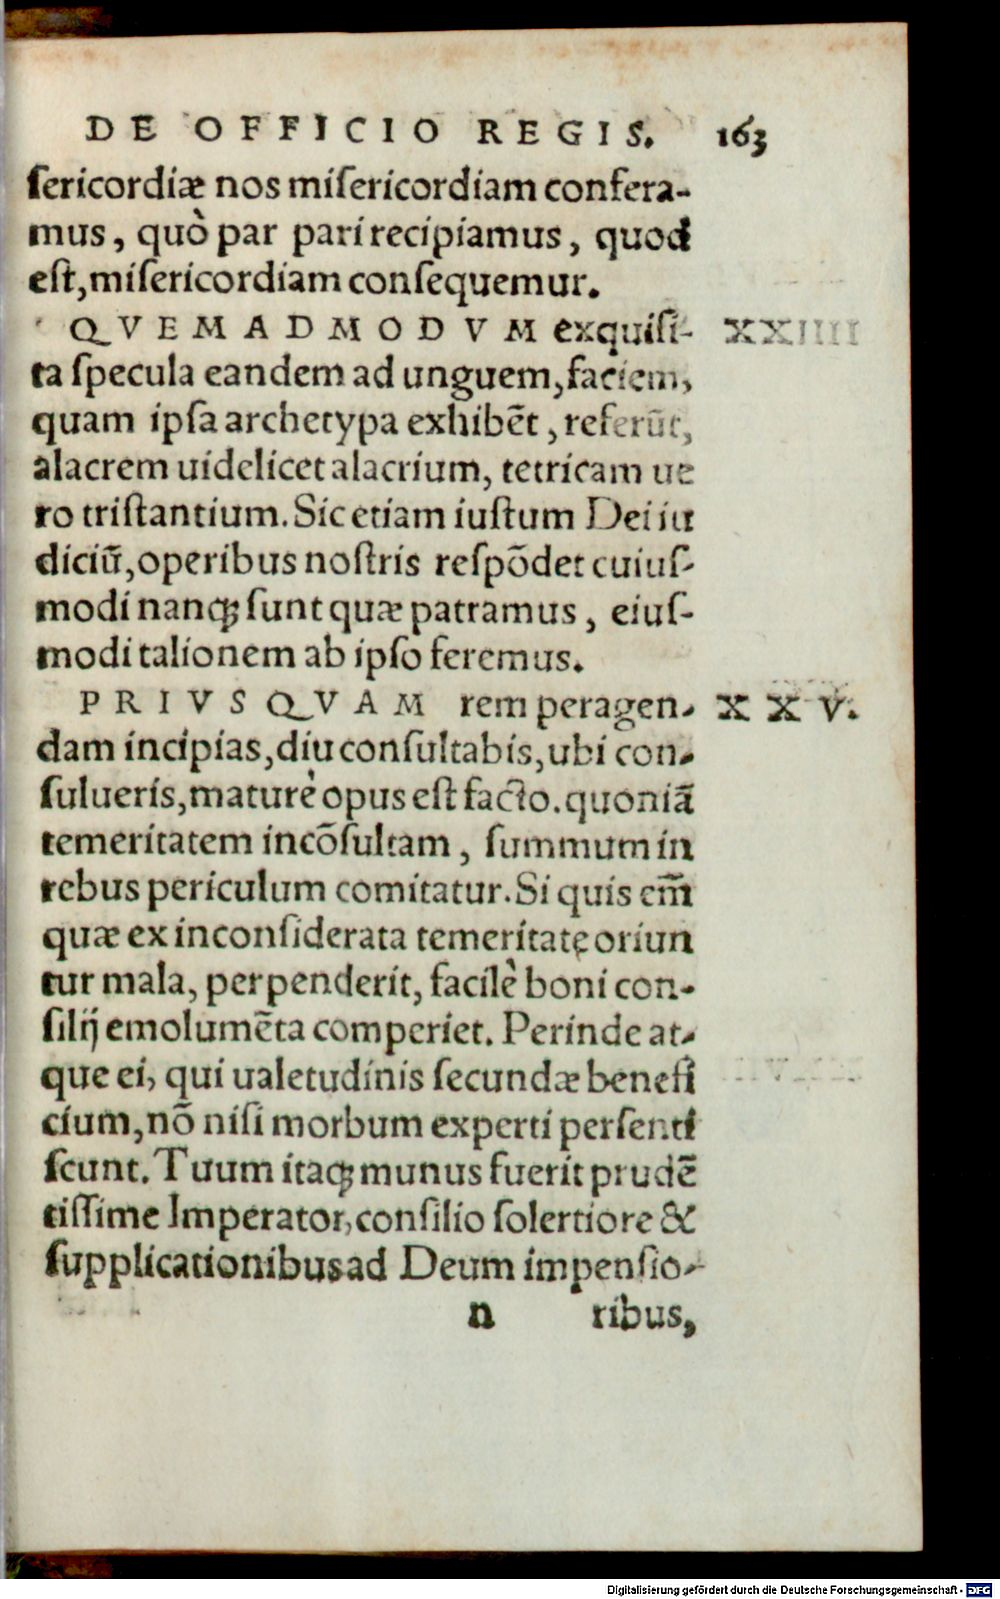 DE OFFICIO REGIS. 163
ſericordiæ nos miſericordiam confera-
mus, quò par pari recipiamus, quod
eſt, miſericordiam conſequemur.
QVEMADMODVM exquiſi- XXIIII
ta ſpecula eandem ad unguem, faciem,
quam ipſa archetypa exhibẽt, referũt,
alacrem uidelicet alacrium, tetricam ue
ro triſtantium. Sic etiam iuſtum Dei iu
diciũ, operibus noſtris reſpõdet cuiuſ-
modi nanq; ſunt quæ patramus, eiuſ-
modi talionem ab ipſo feremus.
PRIVSQVAM rem peragen- XXV.
dam incipias, diu conſultabis, ubi con-
ſulueris, maturè opus eſt facto. quoniã
temeritatem incõſultam, ſummum in
rebus periculum comitatur. Si quis em̃
quæ ex inconſiderata temeritatę oriun
tur mala, perpenderit, facilè boni con-
ſilij emolumẽta comperiet. Perinde at-
que ei, qui ualetudinis ſecundæ benefi
cium, nõ niſi morbum experti perſenti
ſcunt. Tuum itaq; munus fuerit prudẽ
tiſſime Imperator, conſilio ſolertiore &
ſupplicationibus ad Deum impenſio-
n ribus,
Digitalisierung gefördert durch die Deutsche Forschungsgemeinschaft - DFG